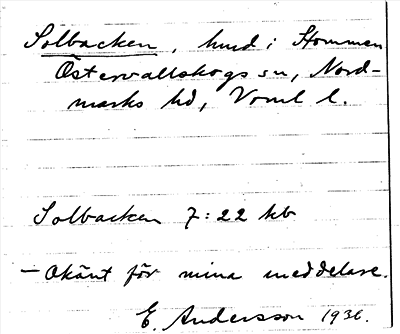 Solbacken, hmd i Hommen
Östervallskogs sn, Nord-
marks hd, Vrml l.
Solbacken 7:22 kb
— Okänt för mina meddelare.
E. Andersson 1936.